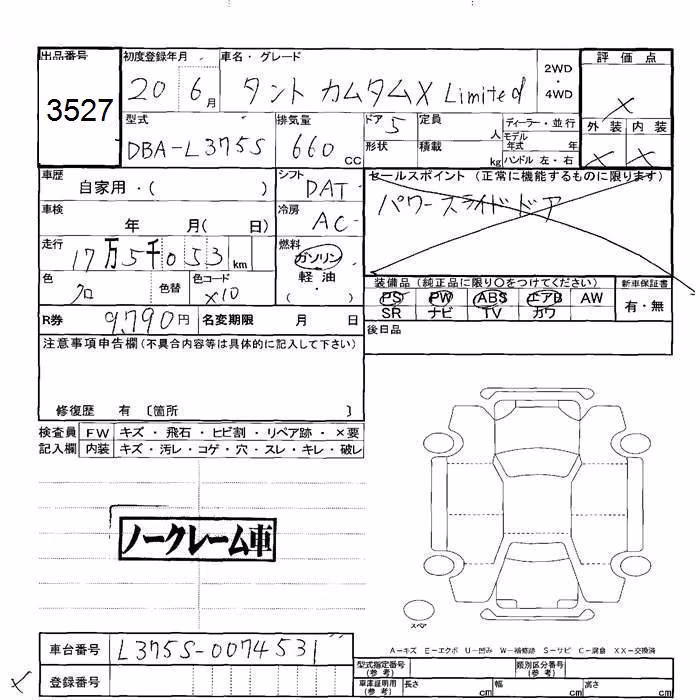 出品番号 初度登録年月 車名・グレード 評価点
3527 20 6月 タント カムタムX Limited 2WD・4WD X
外装 内装
X X
型式 排気量 ドア 5 定員 人 ディーラー・並行
DBA-L375S 660 CC 形状 積載 kg モデル年式 年
ハンドル 左・右
車歴 自家用・( ) シフト DAT セールスポイント (正常に機能するものに限ります)
車検 年 月( 日) 冷房 AC パワースライドドア
走行 17万5千053km 燃料 ガソリン・軽油・( )
色 クロ 色替 色コード X10 装備品 (純正品に限り〇をつけてください) 新車保証書
PS PW ABS エアB AW 有・無
SR ナビ TV カワ
R券 9,790円 名変期限 月 日 後日品
注意事項申告欄 (不具合内容等は具体的に記入して下さい)
修復歴 有 〔箇所 〕
検査員 FW キズ・飛石・ヒビ割・リペア跡・×要
記入欄 内装 キズ・汚レ・コゲ・穴・スレ・キレ・破レ
ノークレーム車
スペア
A-キズ E-エクボ U-凹み W-補修跡 S-サビ C-腐食 XX-交換済
車台番号 L375S-0074531
登録番号
型式指定番号 (参考) 類別区分番号 (参考)
車庫証明用 (参考) 長さ cm 幅 cm 高さ cm
X